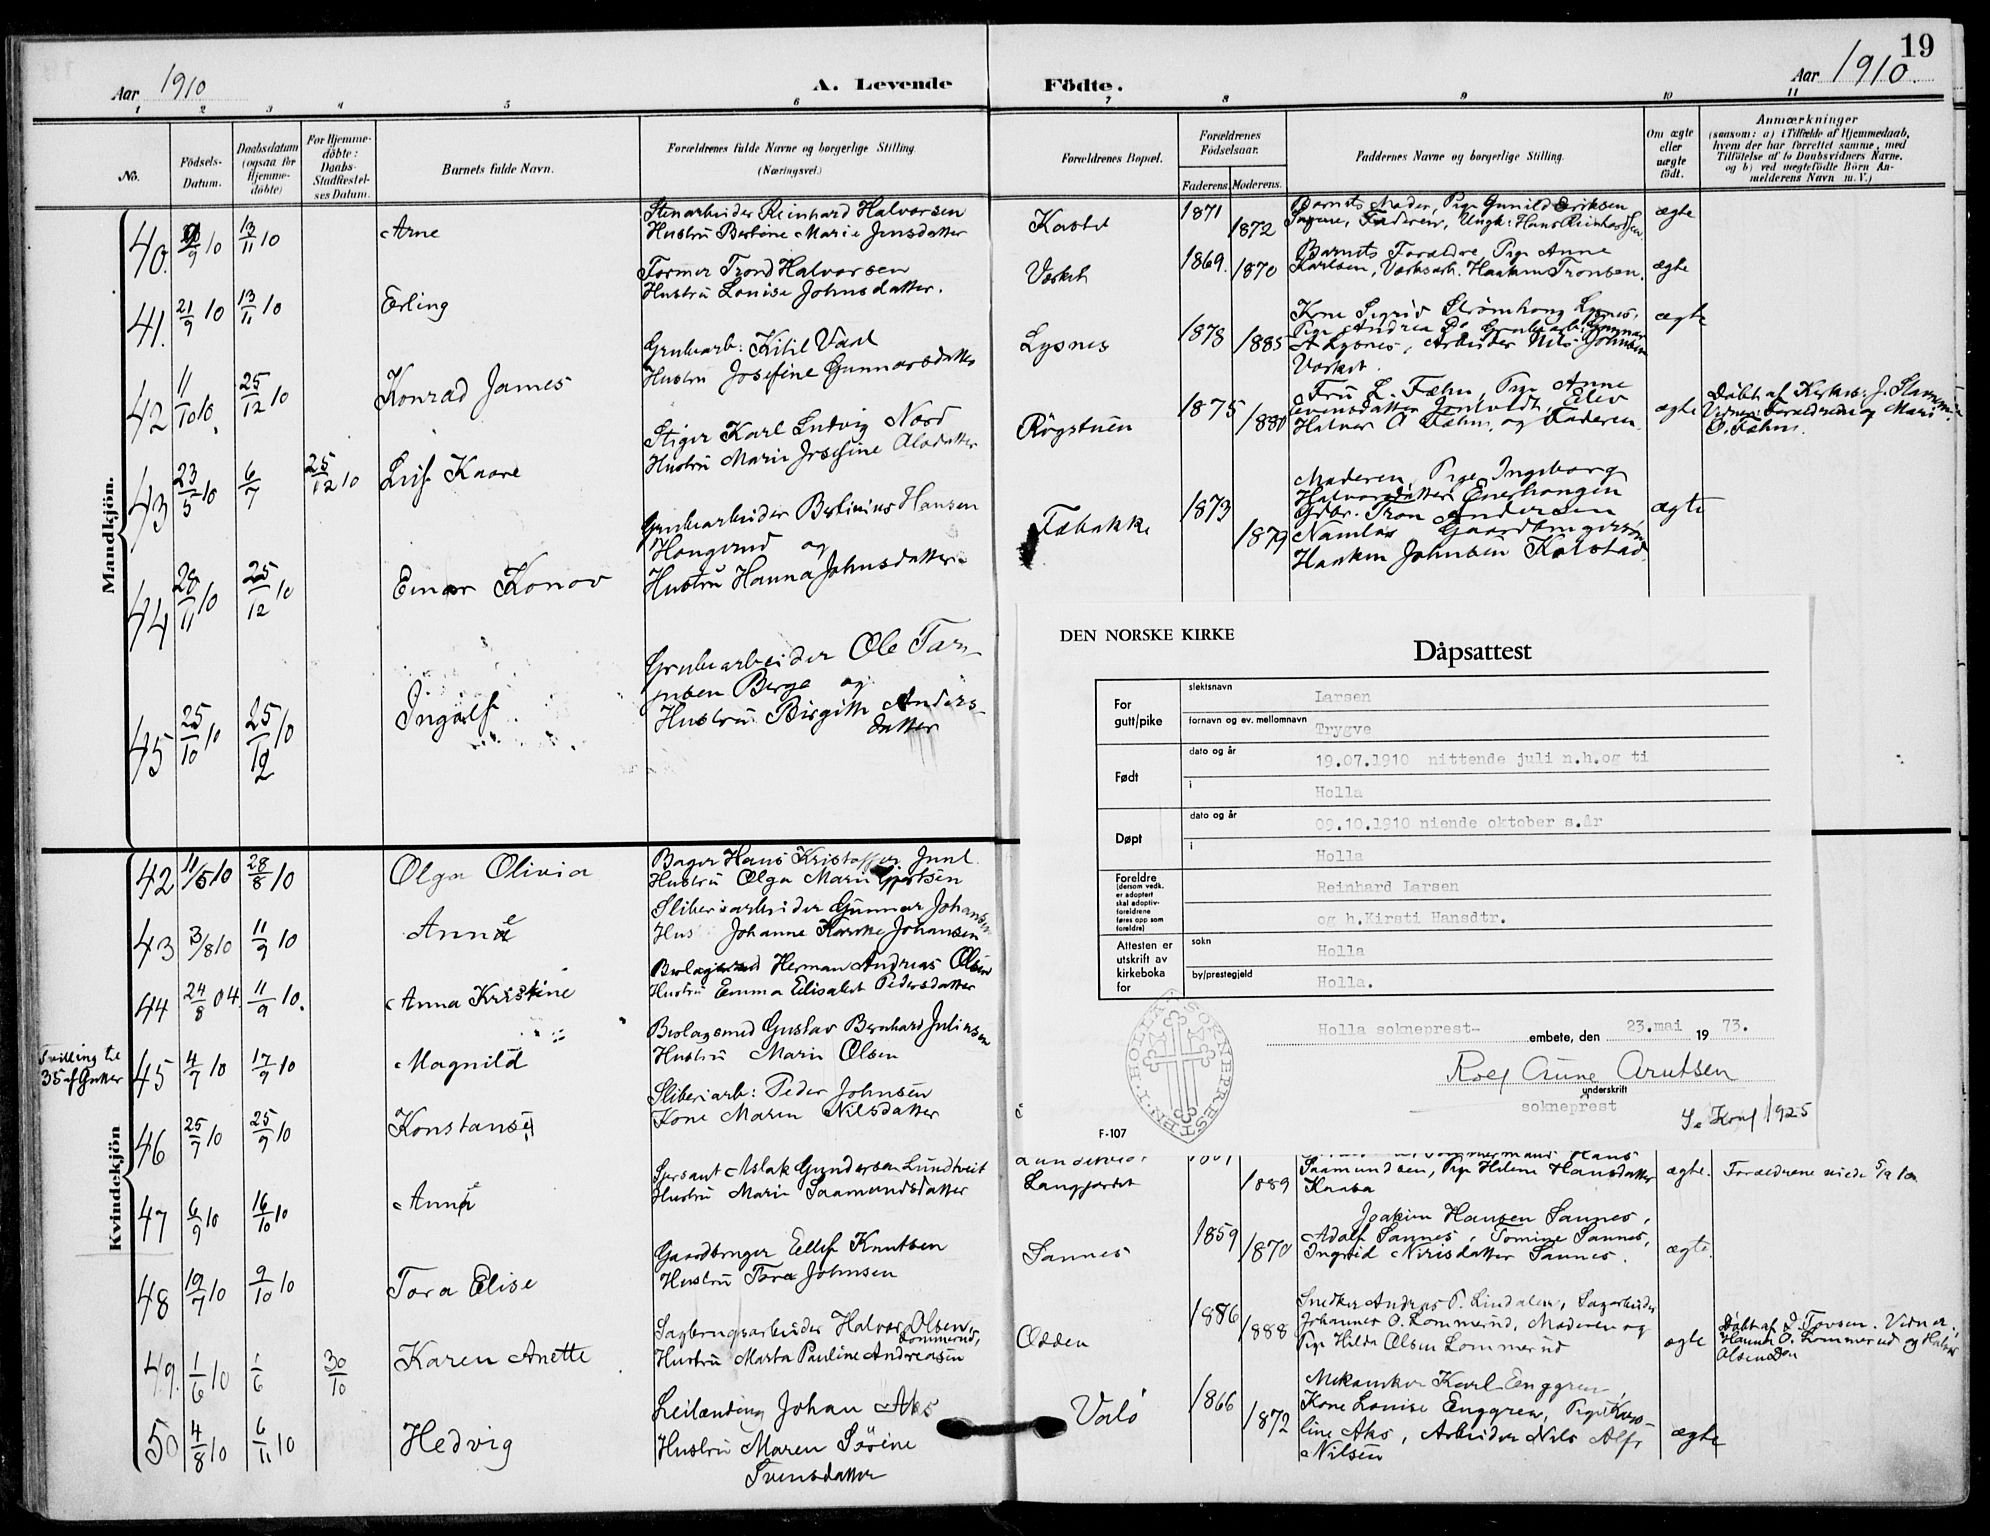 19
Aar 1910
A. Levende Födte.
Aar 1910.
1 2 3 4 5 6 7 8 9 10 11
No.
Födsels-
Datum.
Daabsdatum
(ogsaa for
Hjemme-
döbte)
For Hjemme-
döbte:
Daabs-
Stadfæstel-
ses Datum.
Barnets fulde Navn.
Forældrenes fulde Navne og borgerlige Stilling.
(Næringsvei.)
Forældrenes Bopæl.
Forældrenes
Födselsaar.
Faderens. Moderens.
Faddernes Navne og borgerlige Stilling.
Om ægte
eller
uægte
födt.
Anmærkninger
(saasom: a) i Tilfælde af Hjemmedaab,
hvem der har forrettet samme, med
Tilföielse af to Daabsvidners Navne,
og b) ved uægtefödte Börn An-
melderens Navn m. V.)
Mandkjön.
40. 9/9 10 13/11 10 Arne
Stenarbeider Reinhard Halvorsen
Hustru Bertine Marie Jensdatter
Kastet 1871 1872
Barnets Moder, Pige Gunild Eriksen
Faderen, Ungk: Hans Reinhardsen
ægte
41. 21/9 10 13/11 10 Erling
Former Trond Halvorsen
Hustru Lovise Johnsdatter.
Værket 1869. 1870
Barnets Forældre, Pige Anne
Karlsen, Værksarb. Haaken Tronsen.
ægte
42 11/10 10. 25/12 10 Konrad James
Grubearb: Kitil Vaal
Hustru Josefine Gunnarsdatter
Lysnes 1878 1885
Kone Sigrid Strømhaug Lysnes,
Pige Andrea Do Grubearb. Gunnar
A Lysnes, Arbeider Nils Johnsen
Værket.
ægte
43 23/5 10 6/7 25/12 10 Leif Kaare
Stiger Karl Ludvig Nord
Hustru Marie Josefine Olsdatter
Røgstuen 1875 1880
Fru L. Fæhn, Pige Anne
Halvor O Fæhn, og Faderen
ægte
Døbt af Kirkes: J. Stamm
Vidner: Forældrene og Marie
O. Fæhn.
44 28/11 10 25/12 10 Einar Konov
Grubearbeider Bertinius Hansen
Haugerud og
Hustru Hanna Johnsdatter
Fæbakke 1873 1879
Moderen, Pige Ingeborg
Halvorsdatter Enerhaugen
Gdbr. Tron Andersen
Namløs Gaardbrugersøn
Haaken Johnsen Kolstad
ægte
45 25/10 10 25/12 10 Ingolf
Grubearbeider Ole Tar-
jusen Berge og
Hustru Birgitte Anders-
datter
DEN NORSKE KIRKE
Dåpsattest
For
gutt/pike
slektsnavn
Larsen
fornavn og ev. mellomnavn
Trygve
Født
dato og år
19.07.1910 nittende juli n.h.og ti
i
Holla
Døpt
dato og år
09.10.1910 niende oktober s.år
i
Holla
Foreldre
(dersom vedk.
er adoptert
skal adoptiv-
foreldrene
føres opp som
foreldre)
Reinhard Larsen
og h.Kirsti Hansdtr.
Attesten er
utskrift av
kirkeboka
for
sokn
Holla
by/prestegjeld
Holla.
Holla sokneprest-
embete, den 23.mai 1973.
Rolf Aune Arntsen
underskrift
sokneprest
SOKNEPRESTEN I HOLLA
F-107
Se Konf 1925
Kvindekjön
42 11/5 10 28/8 10 Olga Olivia
Bager Hans Kristoffer Juul
Hustru Olga Marie Gjertsen
43 3/8 10 11/9 10 Anne
Sliberiarbeider Gunnar Johansen
Hus Johanne Karoline Johansen
44 24/8 04. 11/9 10. Anna Kristine
Bolagsmed Herman Andreas Olsen
Hustru Emma Elisabet Pedersdatter
Tvilling til
35 af Gutter
45 4/7 10 17/9 10 Magnild
Bolagsmed Gustav Bernhard Juliusen
Hustru Marie Olsen
46 25/7 10 25/9 10 Konstanse
Sliberiarb: Peder Johnsen
Kone Maren Nilsdatter
47 6/9 10 16/10 10 Anne
Sersant Aslak Gundersen Lundtveit
Hustru Marie Saamundsdatter
Langjordet 1889
Saamundsen, Pige Helene Hansdatter
Kaasa
ægte. Forældrene viede 5/9 10
48 19/7 10 9/10 10 Tora Elise
Gaardbruger Ellef Knutsen
Hustru Tora Johnsen
Sannes 1859 1870
Joakim Hansen Sannes,
Adolf Sannes, Tomine Sannes,
Ingrid Nirisdatter Sannes.
ægte.
49. 1/6 10 1/6 30/10 Karen Anette
Sagbrugsarbeider Halvor Olsen
Lommerud,
Hustru Marta Pauline Andreasen
Odden 1886 1888
Snedker Andreas P. Lindalen, Sagarbeider
Johannes O. Lommerud, Moderen og
Pige Hilda Olsen Lommerud
ægte
Døbt af D. Tovsen. Vidner:
Hans O. Lommerud og Halvor
Olsen Do
50 4/8 10 6/11 10 Hedvig
Leilænding Johan Aks
Hustru Maren Sörine
Svensdatter
Valö 1866 1872
Mekaniker Karl Enggren,
Kone Lovise Enggren, Pige Karo-
line Aks, Arbeider Nils Alfr
Nilsen
ægte